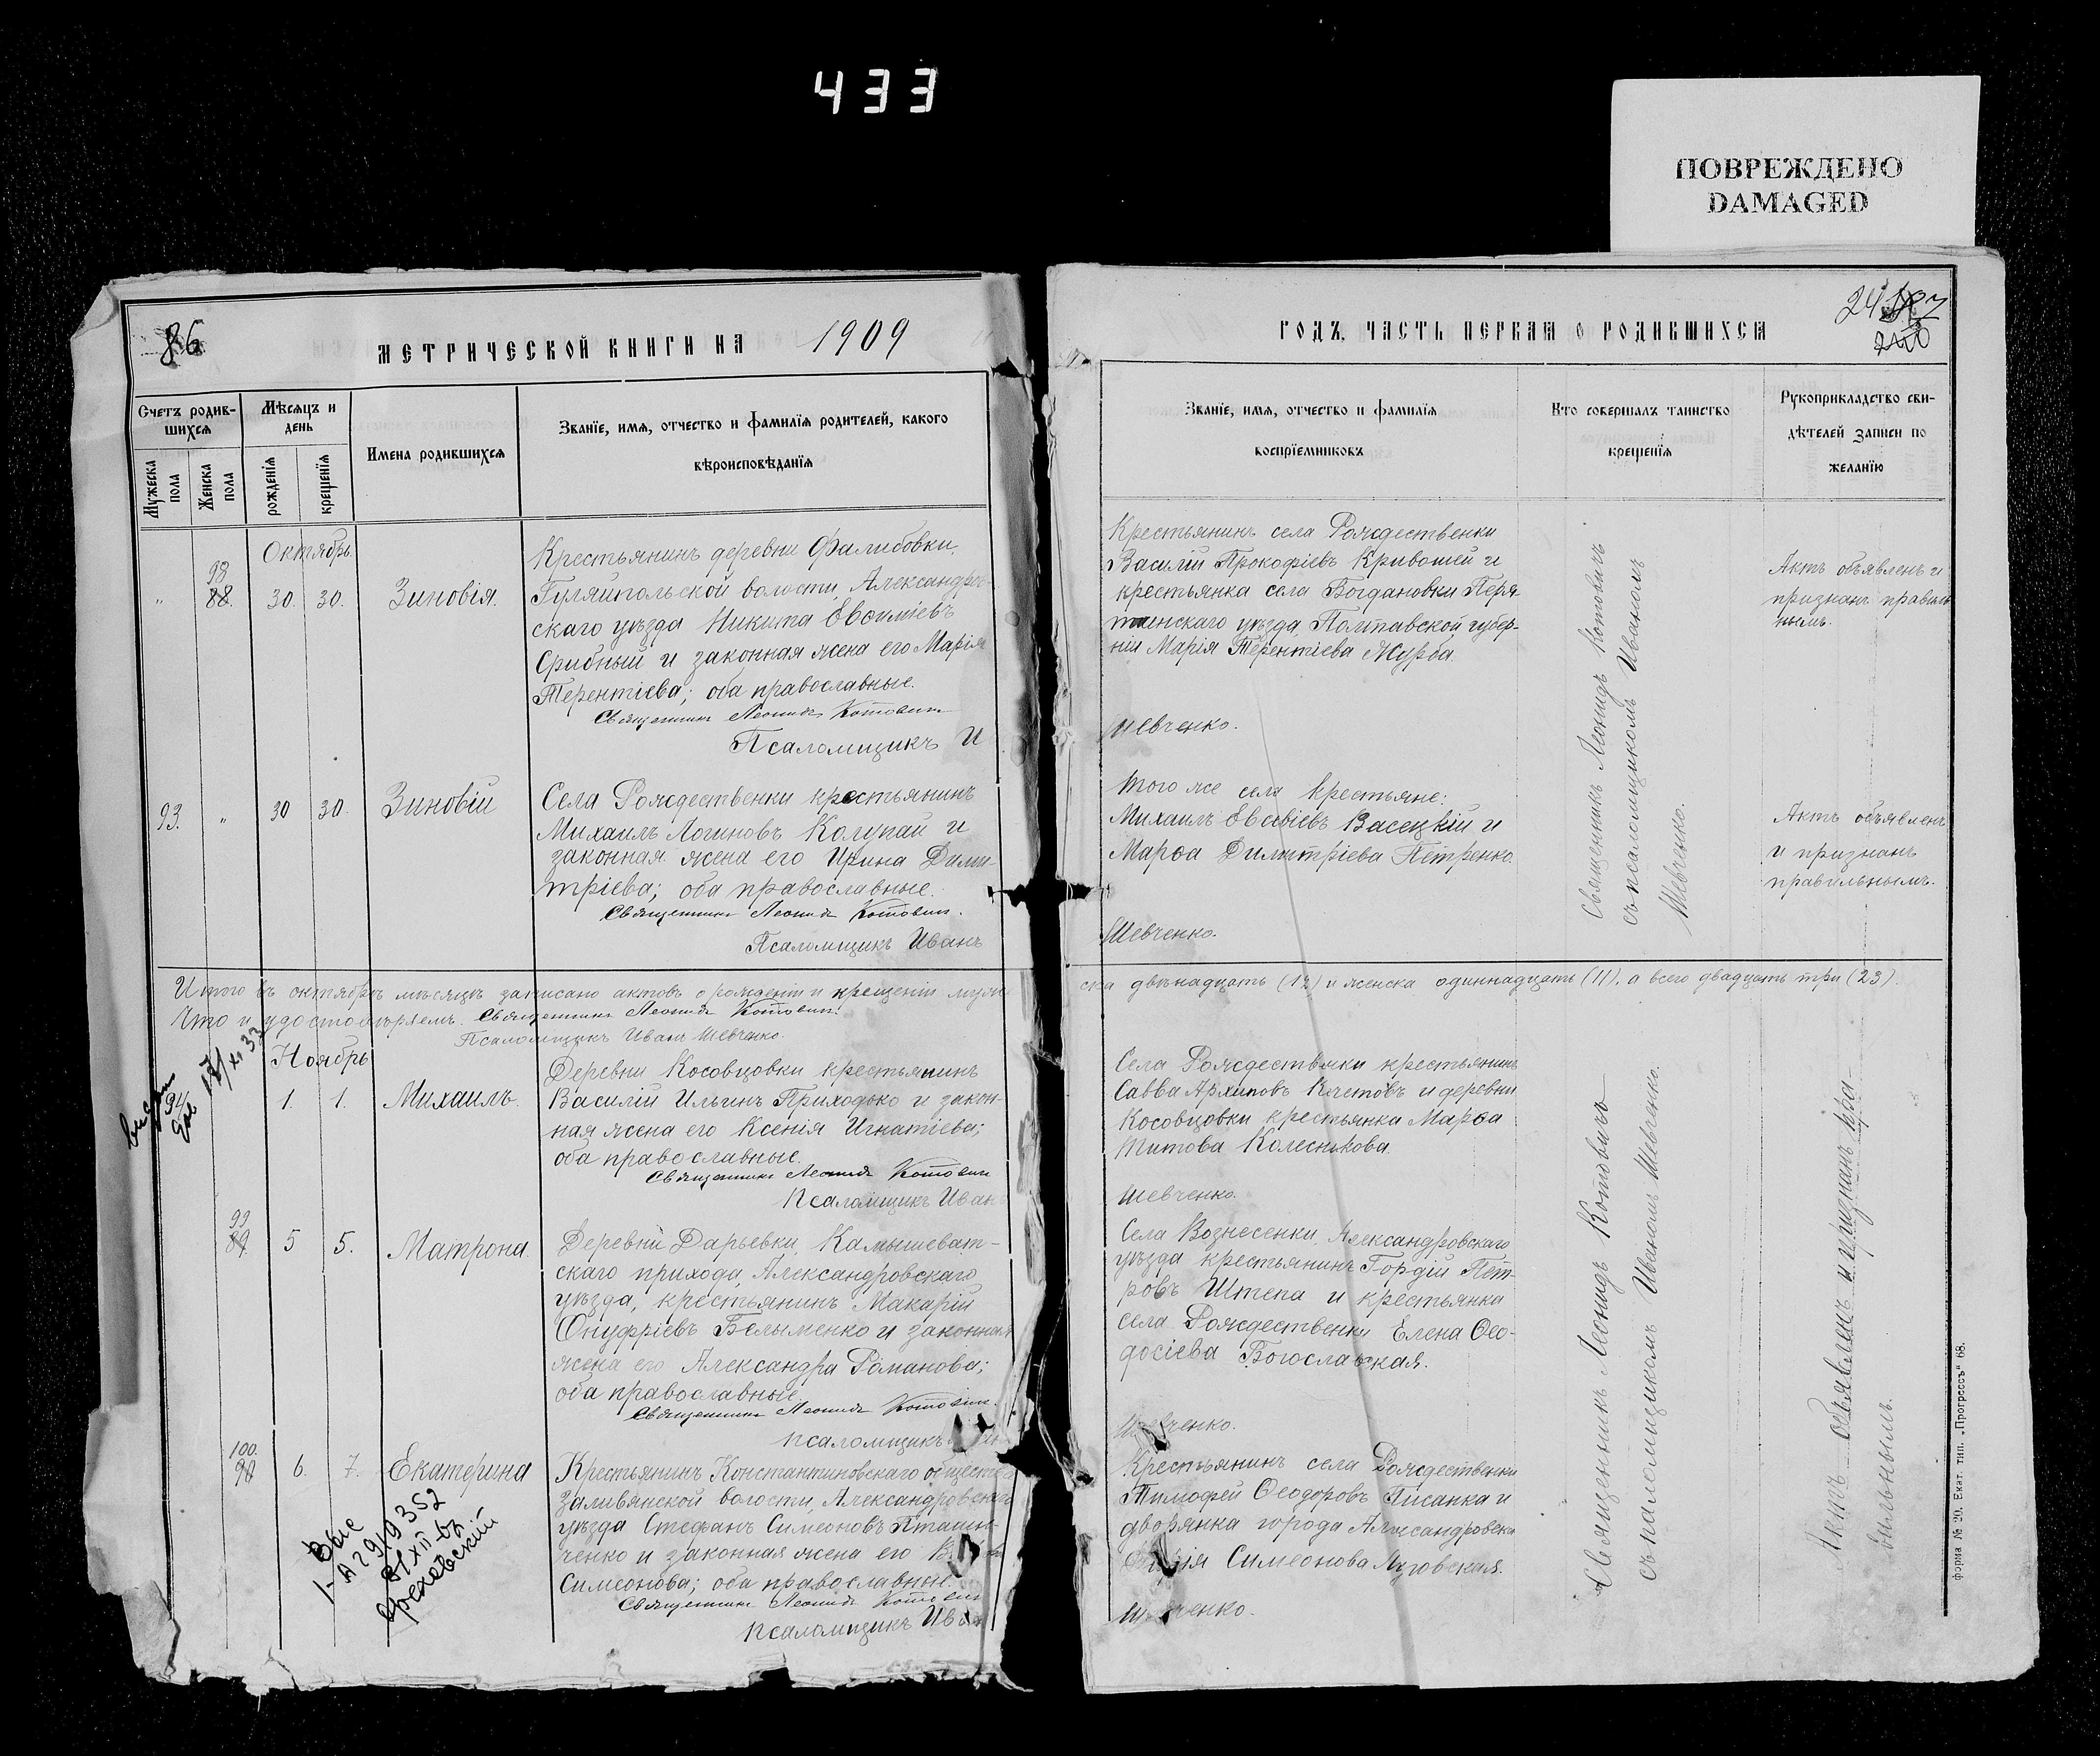 433
ПОВРЕЖДЕНО
DAMAGED
86
МЕТРИЧЕСКОЙ КНИГИ НА 1909
Счетъ родив-
шихся
Мѣсяцъ и
день
Имена родившихся
Званїе, имя, отчество и фамилїя родителей, какого
вѣроисповѣданїя
Мужеска
пола
Женска
пола
рожденїя
крещенїя
Октябрь.
98
88. 30. 30. Зиновія.
Крестьянинъ деревни Фалибовки,
Гуляйпольской волости, Александров-
скаго уѣзда Никита Евѳиміевъ
Срибный и законная жена его Марія
Терентіева; оба православные.
Священникъ Леонидъ Котовичъ
Псаломщикъ И
93. " 30 30. Зиновій
Села Рождественки крестьянинъ
Михаилъ Логиновъ Колупай и
законная жена его Ирина Дими-
тріева; оба православные.
Священникъ Леонидъ Котовичъ.
Псаломщикъ Иванъ
Итого въ октябрѣ мѣсяцѣ записано актовъ о рожденіи и крещеніи муже
Что и удостовѣряемъ. Священникъ Леонидъ Котовичъ
Псаломщикъ Иванъ Шевченко.
Ноябрь
94 1. 1. Михаилъ.
Деревни Косовцовки крестьянинъ
Василій Ильинъ Приходько и закон-
ная жена его Ксенія Игнатіева;
оба православные.
Священникъ Леонидъ Котовичъ
Псаломщикъ Иван
99
89. 5 5. Матрона.
Деревни Дарьевки, Камышеват-
скаго прихода, Александровскаго
уѣзда, крестьянинъ Макарій
Онуфріевъ Бѣлыменко и законная
жена его Александра Романова;
оба православные.
Священникъ Леонидъ Котовичъ.
Псаломщикъ
100.
90 6. 7. Екатерина
Крестьянинъ Константиновскаго общества
Заливянской волости, Александровскаго
уѣзда Стефанъ Симеоновъ Пташин-
ченко и законная жена его
Симеонова; оба православные.
Священникъ Леонидъ Котовичъ
Псаломщикъ Иван
ГОДЪ, ЧАСТЬ ПЕРВАЯ О РОДИВШИХСЯ
Званїе, имя, отчество и фамилїя
воспрїемниковъ
Кто совершалъ таинство
крещенїя
Рукоприкладство сви-
дѣтелей записи по
желанїю
Крестьянинъ села Рождественки
Василій Прокофіевъ Кривошей и
крестьянка села Богдановки Перя-
тинскаго уѣзда, Полтавской губер-
ніи Марія Терентіева Журба.
Шевченко.
Того же села крестьяне:
Михаилъ Евѳиміевъ Васецкій и
Марѳа Димитріева Петренко.
Шевченко.
Священникъ Леонидъ Котовичъ
съ псаломщикомъ Иваномъ
Шевченко.
Актъ объявленъ и
признанъ правиль-
нымъ.
Актъ объявленъ
и признанъ
правильнымъ.
ска двѣнадцать (12) и женска одиннадцать (11), а всего двадцать три (23).
Села Рождественки крестьянинъ
Савва Архиповъ Кчетовъ и деревни
Косовцовки крестьянка Марѳа
Титова Колесникова.
Шевченко.
Села Вознесенки, Александровскаго
уѣзда крестьянинъ Гордій Пет-
ровъ Штепа и крестьянка
села Рождественки Елена Ѳео-
досіева Богославская.
Шевченко.
Крестьянинъ села Рождественки
Тимофей Ѳеодоровъ Писанка и
дворянка города Александровска
Марія Симеонова Луговская.
Шевченко.
Священникъ Леонидъ Котовичъ
съ псаломщикомъ Иваномъ Шевченко.
Актъ объявленъ и признанъ пра-
вильнымъ.
форма № 20. Екат. тип. „Прогрессъ“ 68.